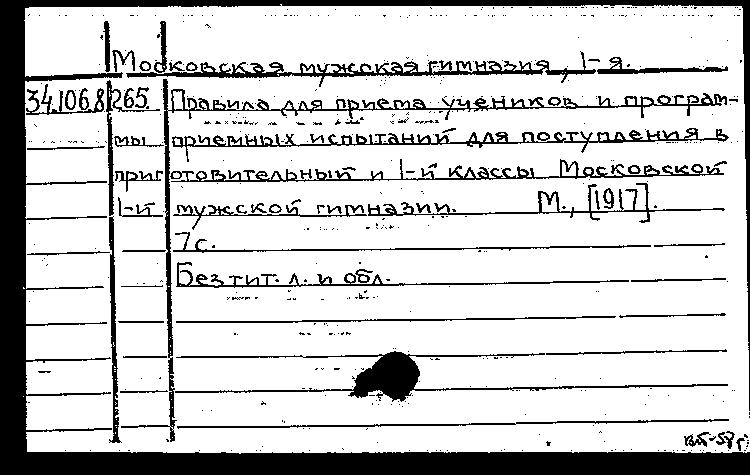 Московская мужская гимназия, 1-я.
34.106.8 265 Правила для приема учеников и програм-
мы приемных испытаний для поступления в
приготовительный и 1-й классы Московской
1-й мужской гимназии. М., [1917].
7 с.
Без тит. л. и обл.